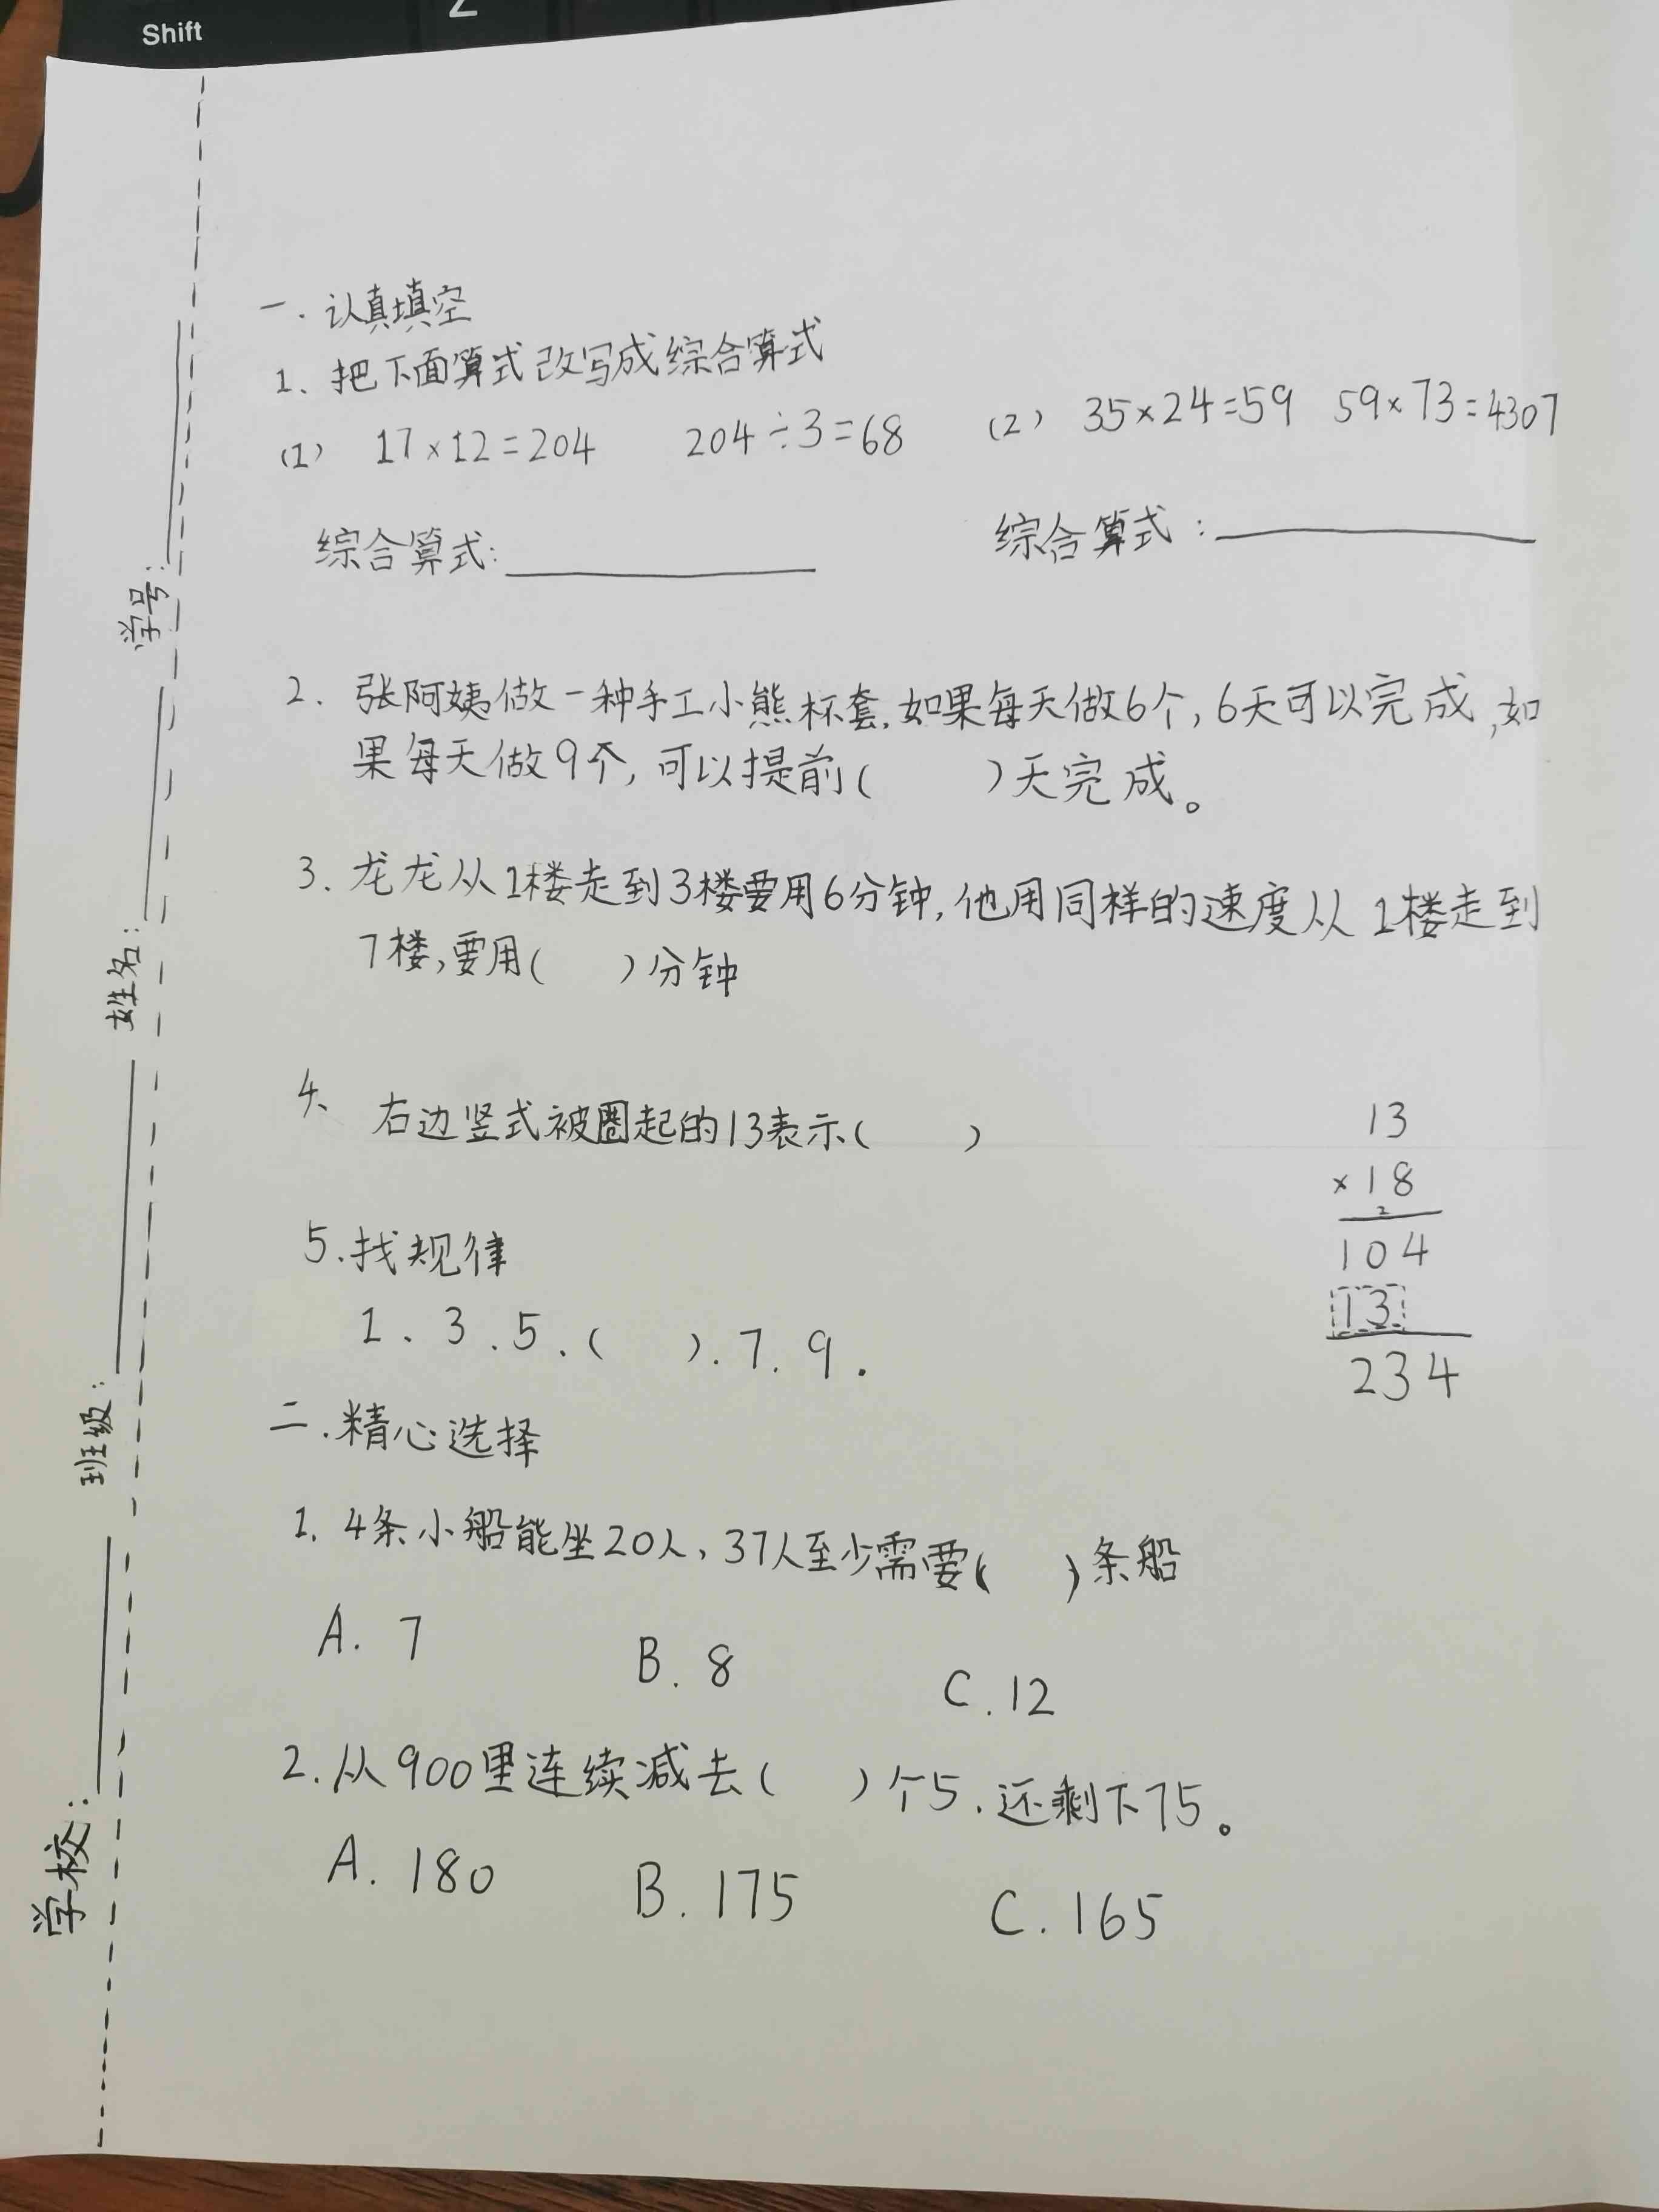 Shift
Z
一.认真填空
1、把下面算式改写成综合算式
(1) 17×12=204 204÷3=68 (2) 35×24=59 59×73=4307
综合算式:____________ 综合算式:____________
2. 张阿姨做一种手工小熊杯套,如果每天做6个,6天可以完成,如
果每天做9个,可以提前( )天完成。
3.龙龙从1楼走到3楼要用6分钟,他用同样的速度从1楼走到
7楼,要用( )分钟
4、右边竖式被圈起的13表示( )
13
×18
2
104
13
234
5.找规律
1、3、5、( ).7.9.
二.精心选择
1.4条小船能坐20人,37人至少需要( )条船
A. 7 B. 8 C. 12
2.从900里连续减去( )个5.还剩下75。
A. 180 B. 175 C. 165
学校:________ 班级:________ 姓名:________ 学号:________